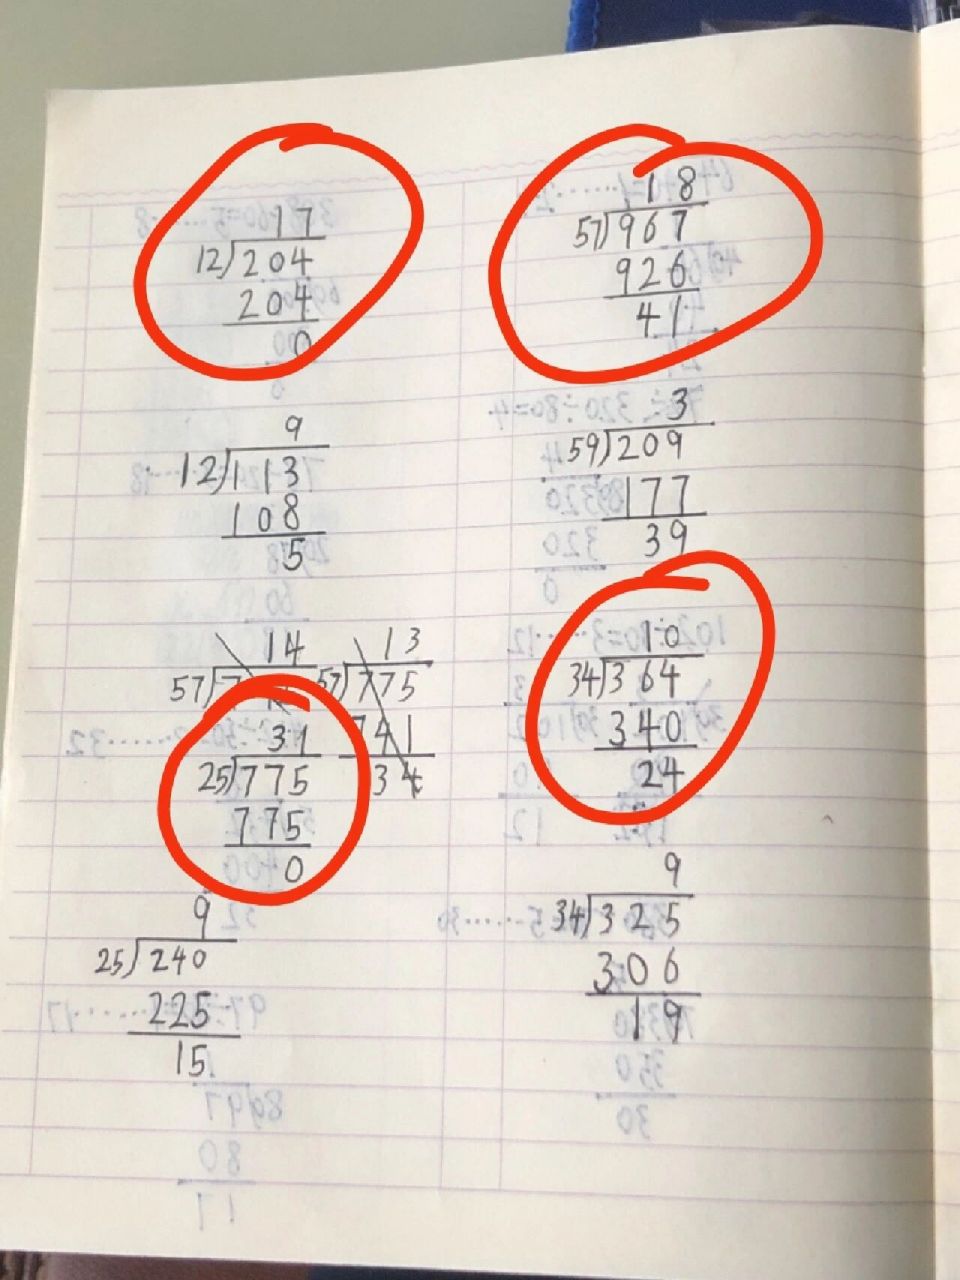 17
12)204
204
0
9
12)113
108
5
14
57)7
13
57)775
741
34
31
25)775
775
0
9
25)240
225
15
18
57)967
926
41
3
59)209
177
39
10
34)364
340
24
9
34)325
306
19